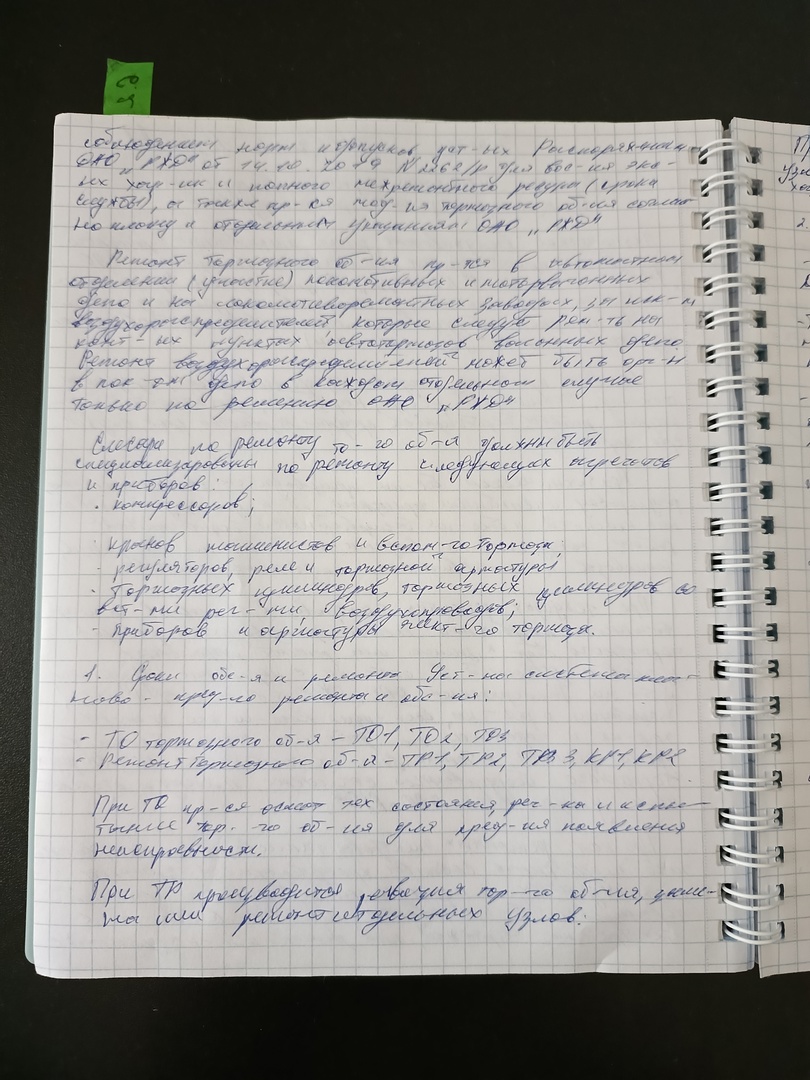 соблюдением норм и допусков, уст-ых Распоряжением
ОАО „РЖД" от 14.10.2019 N2262/р для вос-ия эка-
ых хар-ик и полного межремонтного ресурса (срока
службы), а также пр-ся мод-ия тормозного об-ия соглас-
но плану и отдельным указаниям ОАО „РЖД"
Ремонт тормозного об-ия пр-тся в автоматном
отделении (участке) локомотивных и моторвагонных
депо и на локомотиворемонтных заводах, за иск-м
воздухораспределителей, которые следует рем-ть на
конт-ых пунктах автотормозов вагонных депо.
Ремонт воздухораспределителей может быть орг-н
в лок-ом депо в каждом отдельном случае
только по решению ОАО „РЖД"
Слесари по ремонту то-го об-я должны быть
специализированы по ремонту следующих агрегатов
и приборов:
· компрессоров;
· кранов машинистов и вспом-го тормоза;
- регуляторов, реле и тормозной арматуры
- Тормозных цилиндров, тормозных цилиндров со
вст-ми рег-ми, воздухопроводов;
- Приборов и арматуры элект-го тормоза.
1. Сроки обс-я и ремонта Уст-на система пла-
ново-пред-го ремонта и обс-ия:
- ТО тормозного об-я – ТО1, ТО2, ТО3
- Ремонт Тормозного об-я – ТР1, ТР2, ТР3, КР1, КР2
При ТО пр-ся осмотр тех состояния, рег-ка и испы-
тание тор-го об-ия для пред-ия появления
неисправности.
При ТР производится ревизия тор-го об-ия, заме-
на или ремонт отдельных узлов:
П
узл
хо
2.